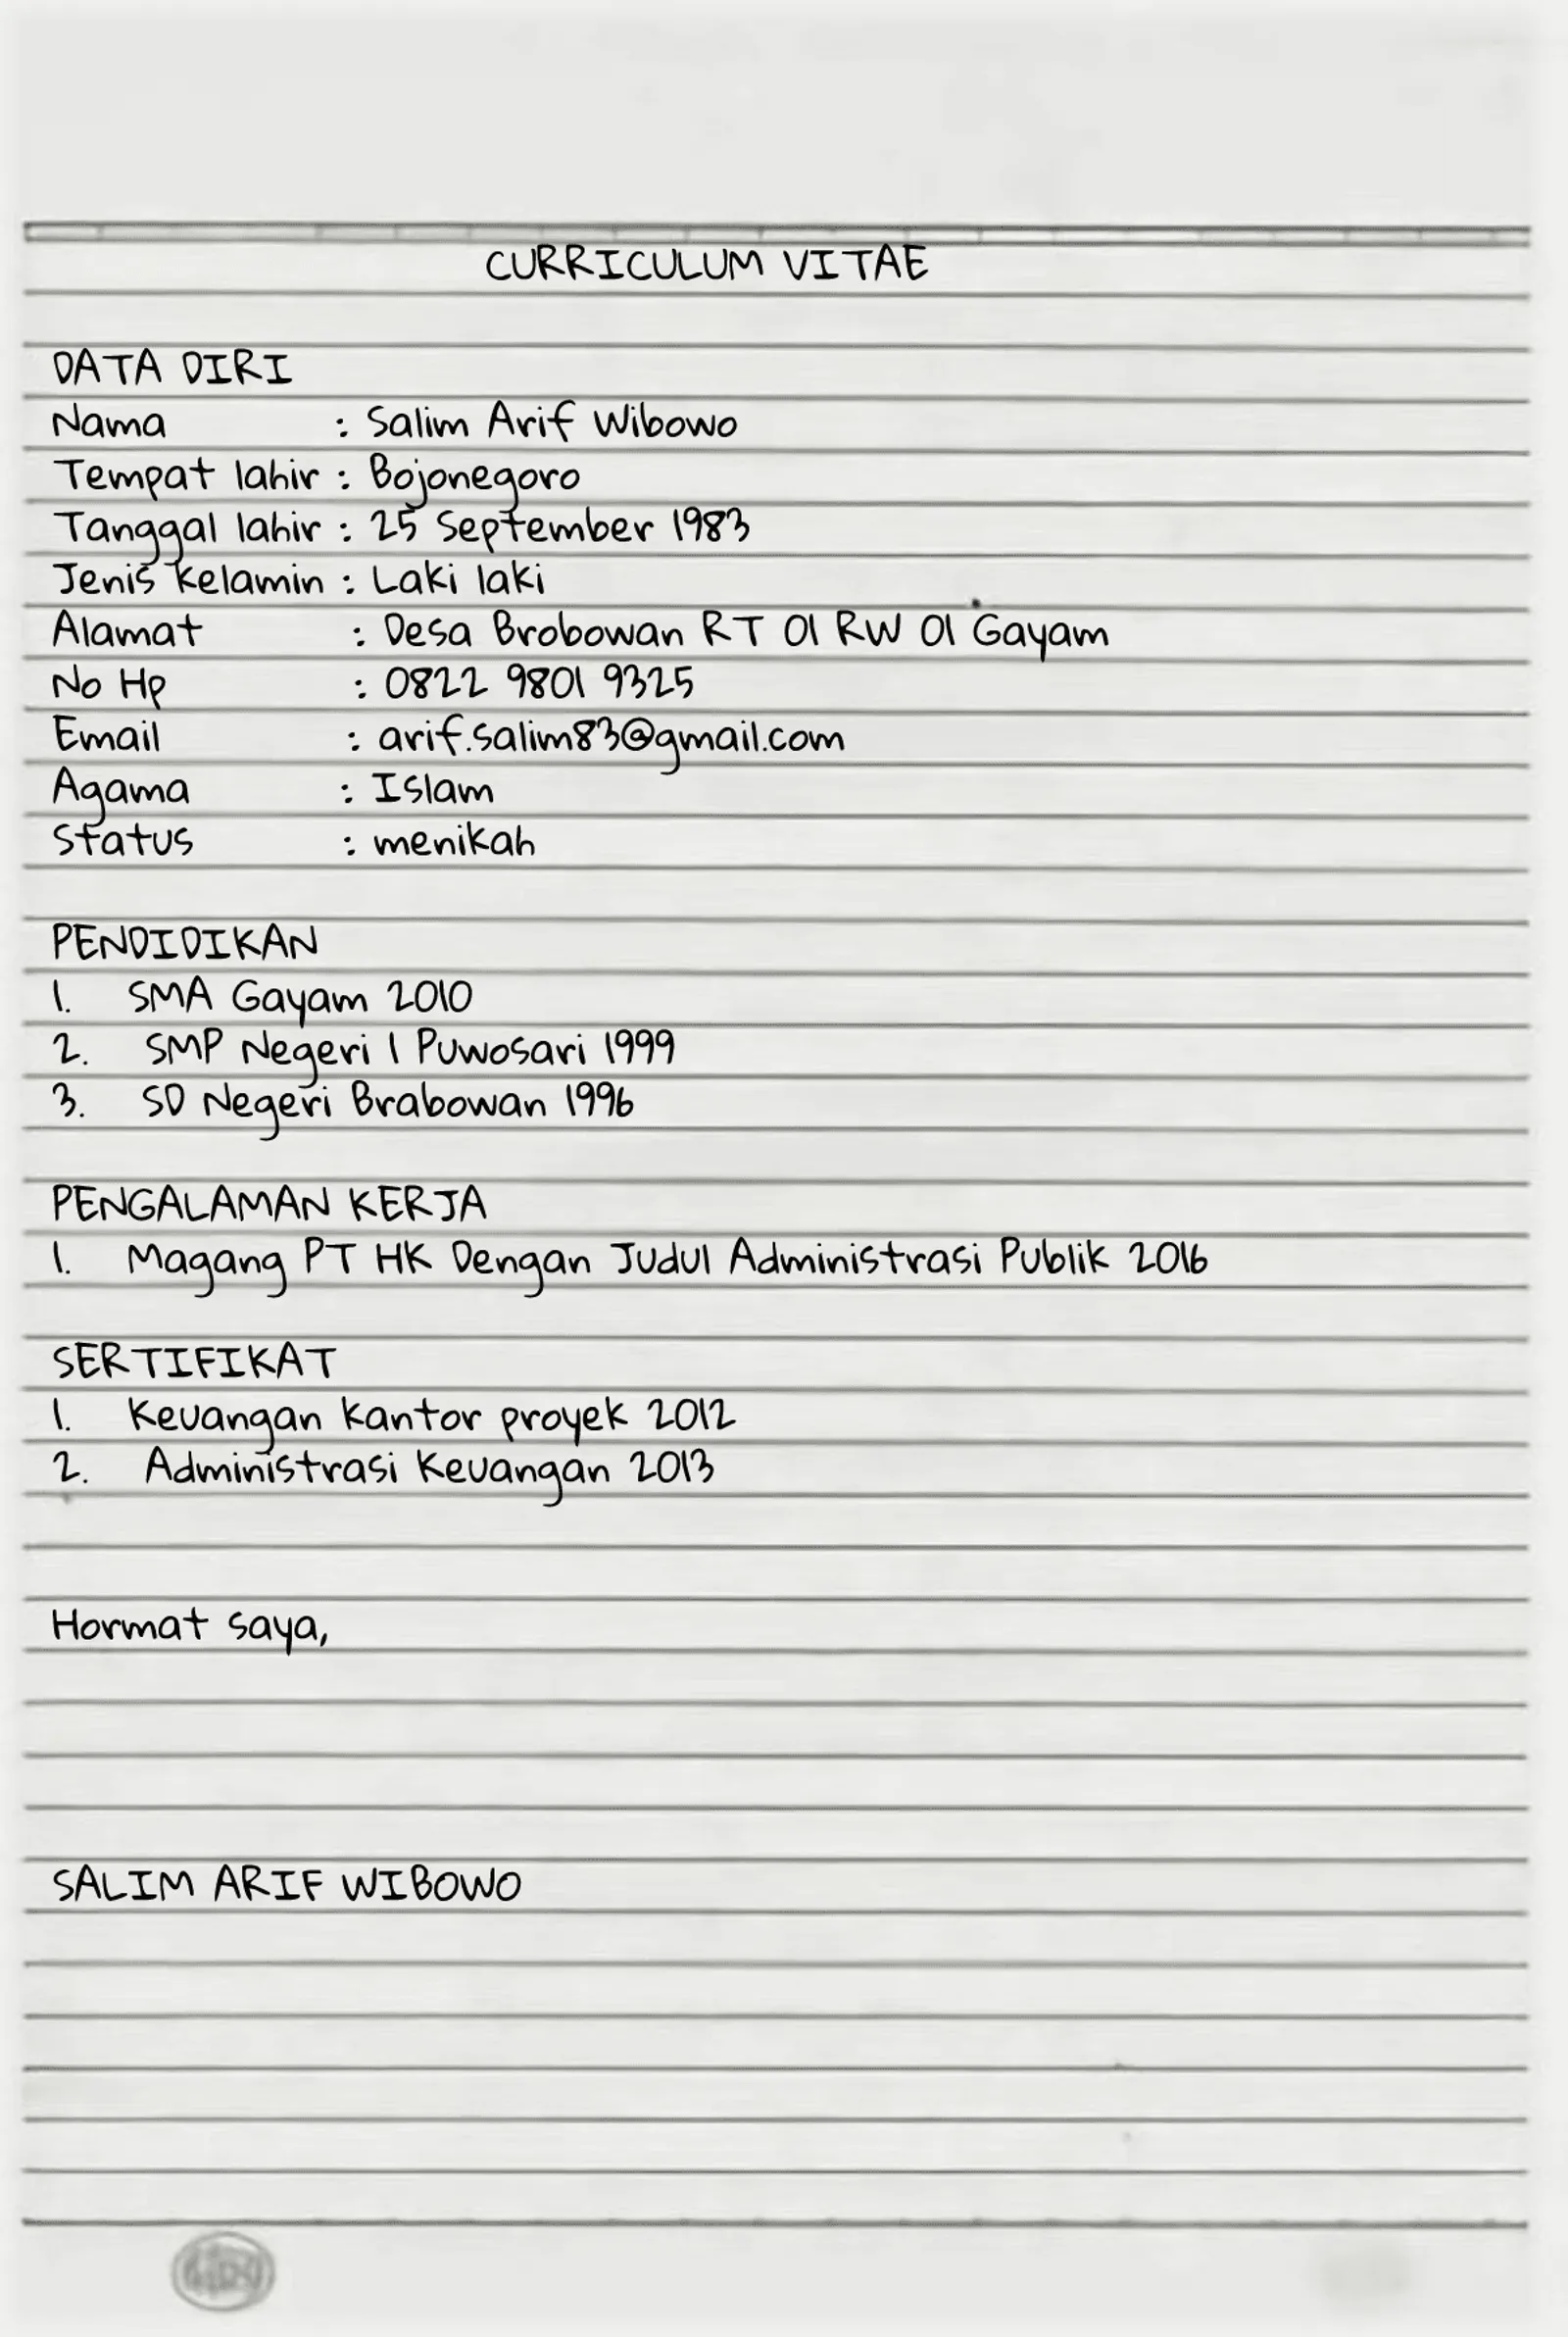 CURRICULUM VITAE
DATA DIRI
Nama : Salim Arif Wibowo
Tempat lahir : Bojonegoro
Tanggal lahir : 25 September 1983
Jenis kelamin : Laki laki
Alamat : Desa Brobowan RT 01 RW 01 Gayam
No Hp : 0822 9801 9325
Email : arif.salim83@gmail.com
Agama : Islam
Status : menikah
PENDIDIKAN
1. SMA Gayam 2010
2. SMP Negeri 1 Puwosari 1999
3. SD Negeri Brabowan 1996
PENGALAMAN KERJA
1. Magang PT HK Dengan Judul Administrasi Publik 2016
SERTIFIKAT
1. Keuangan kantor proyek 2012
2. Administrasi Keuangan 2013
Hormat saya,
SALIM ARIF WIBOWO